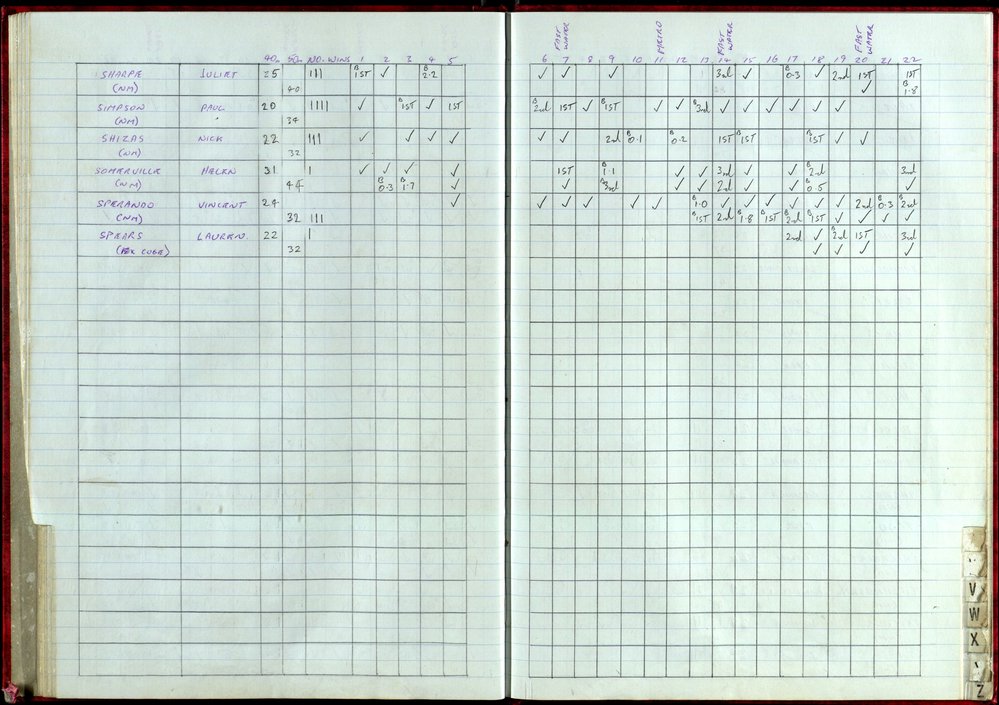 FAST WATER METRO FAST WATER FAST WATER
40m 50m NO. WINS 1 2 3 4 5 6 7 8 9 10 11 12 13 14 15 16 17 18 19 20 21 22
SHARPE JULIET 25 |||  B 1ST ✓ B 2.2 ✓ ✓ ✓ 3rd ✓ B 0.3 ✓ 2nd 1ST 1ST
(NM) 40 ✓ B 1.8
SIMPSON PAUL 20 |||| ✓ B 1ST ✓ 1ST B 2nd 1ST ✓ B 1ST ✓ ✓ B 3rd ✓ ✓ ✓ ✓ ✓ ✓
(NM) 34
SHIZAS NICK 22 ||| ✓ ✓ ✓ ✓ ✓ ✓ 2nd B 0.1 B 0.2 1ST B 1ST B 1ST ✓ ✓
(NM) 32
SOMERVILLE HELEN 31 | ✓ ✓ ✓ ✓ 1ST B 1.1 ✓ ✓ 3rd ✓ ✓ B 2nd 3rd
(NM) 45 B 0.3 B 1.7 ✓ ✓ B 3rd ✓ ✓ 2nd ✓ ✓ B 0.5 ✓
SPERANDO VINCENT 24 ✓ ✓ ✓ ✓ ✓ ✓ B 1.0 ✓ ✓ ✓ ✓ ✓ ✓ 2nd B 0.3 B 2nd
(NM) 32 ||| B 1ST 2nd B 1.8 B 1ST B 2nd B 1ST ✓ ✓ ✓ ✓
SPEARS LAUREN 22 | 2nd ✓ B 2nd 1ST 3rd
CUBE) 32 ✓ ✓ ✓ ✓
V
W
X
Z